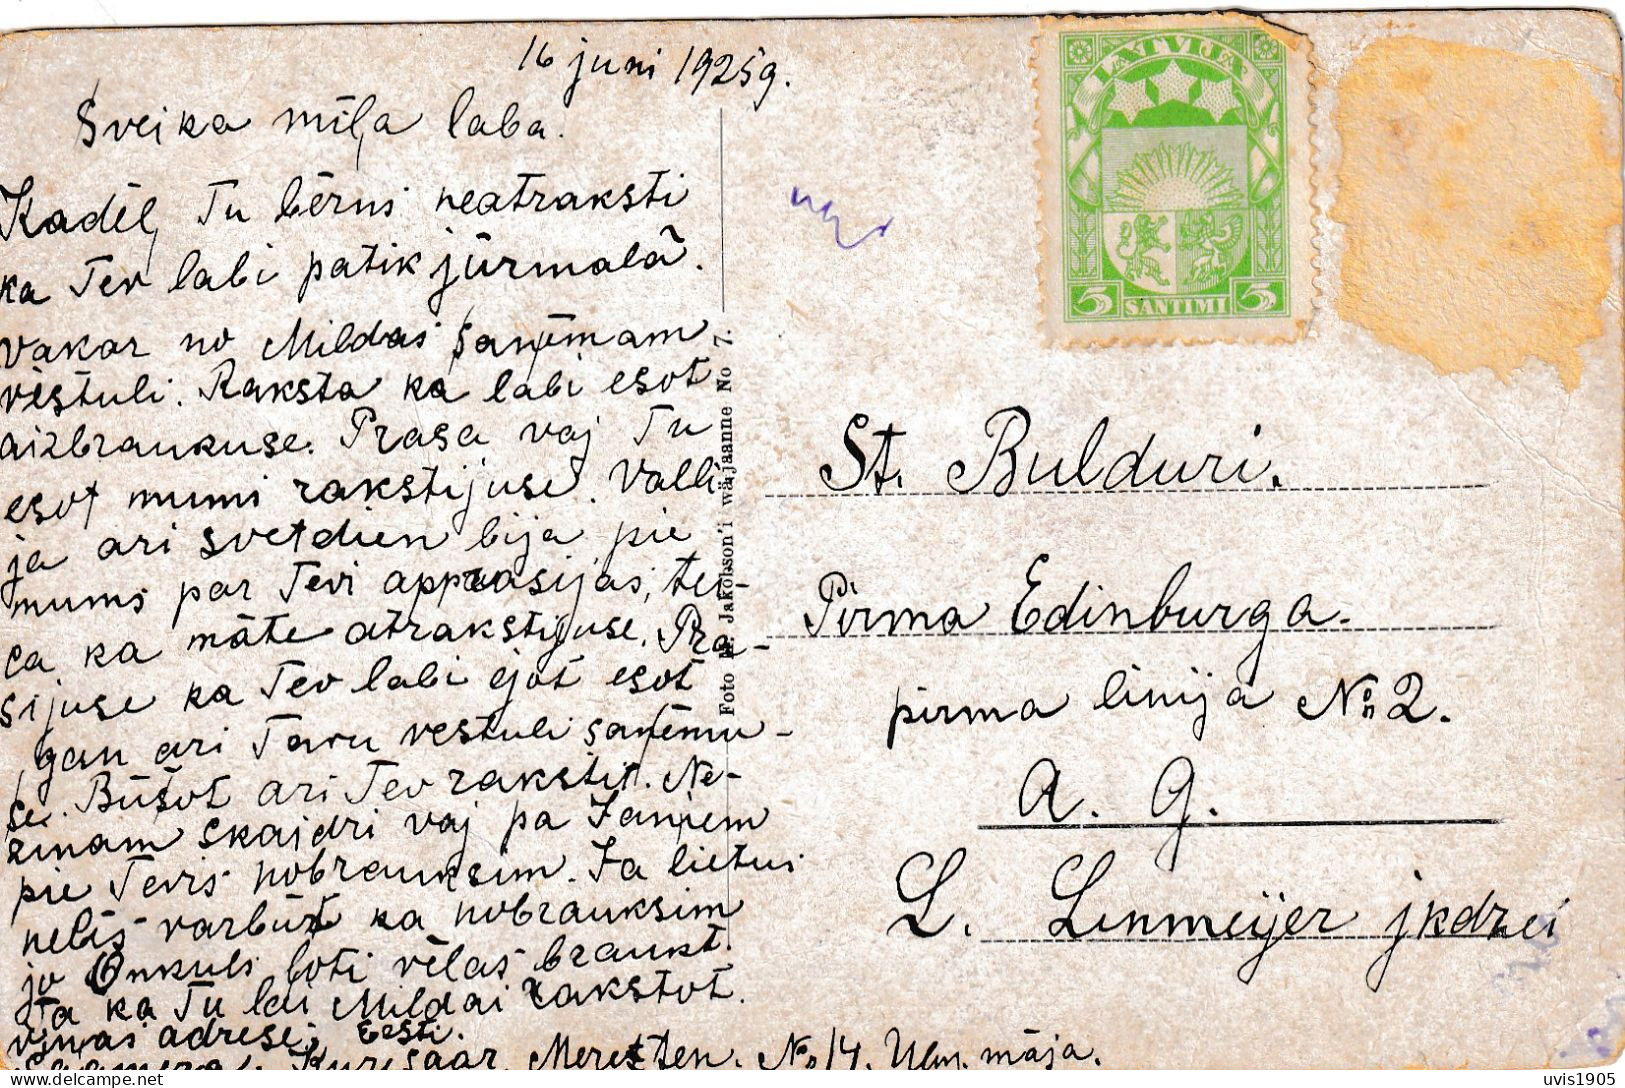 16 juni 1925 g.
Sveika mīļa laba.
Kadēļ Tu bērni neatraksti
ka Tev labi patik jūrmalā.
Vakar no Mildas saņēmam
vēstuli. Raksta ka labi esot
aizbraukuse. Prasa vaj Tu
esot mumi rakstijuse. Valli
ja ari svetdien bija pie
mums par Tevi apprasijas, tei-
ca ka māte atrakstijuse. Pra-
sijuse ka Tev labi ejot esot
gan ari Tavu vestuli saņēmu-
se. Būšot ari Tev rakstit. Ne-
zinam skajdri vaj pa Janiem
pie Tevis nobrauksim. Ja lietus
nelīs varbūt ka nobrauksim
jo Onkuls ļoti vēlas braukt.
Ta ka Tu lai Mildai rakstot.
viņas adrese; Eesti.
Kuresaar, No 14. māja.
LATVIJA
5 SANTIMI 5
Foto Jakobson'i wäljaanne No 7.
St. Bulduri.
Pirma Edinburga.
pirma linija No 2.
A. G.
L. Lenmeijer jkdzei
uvis1905